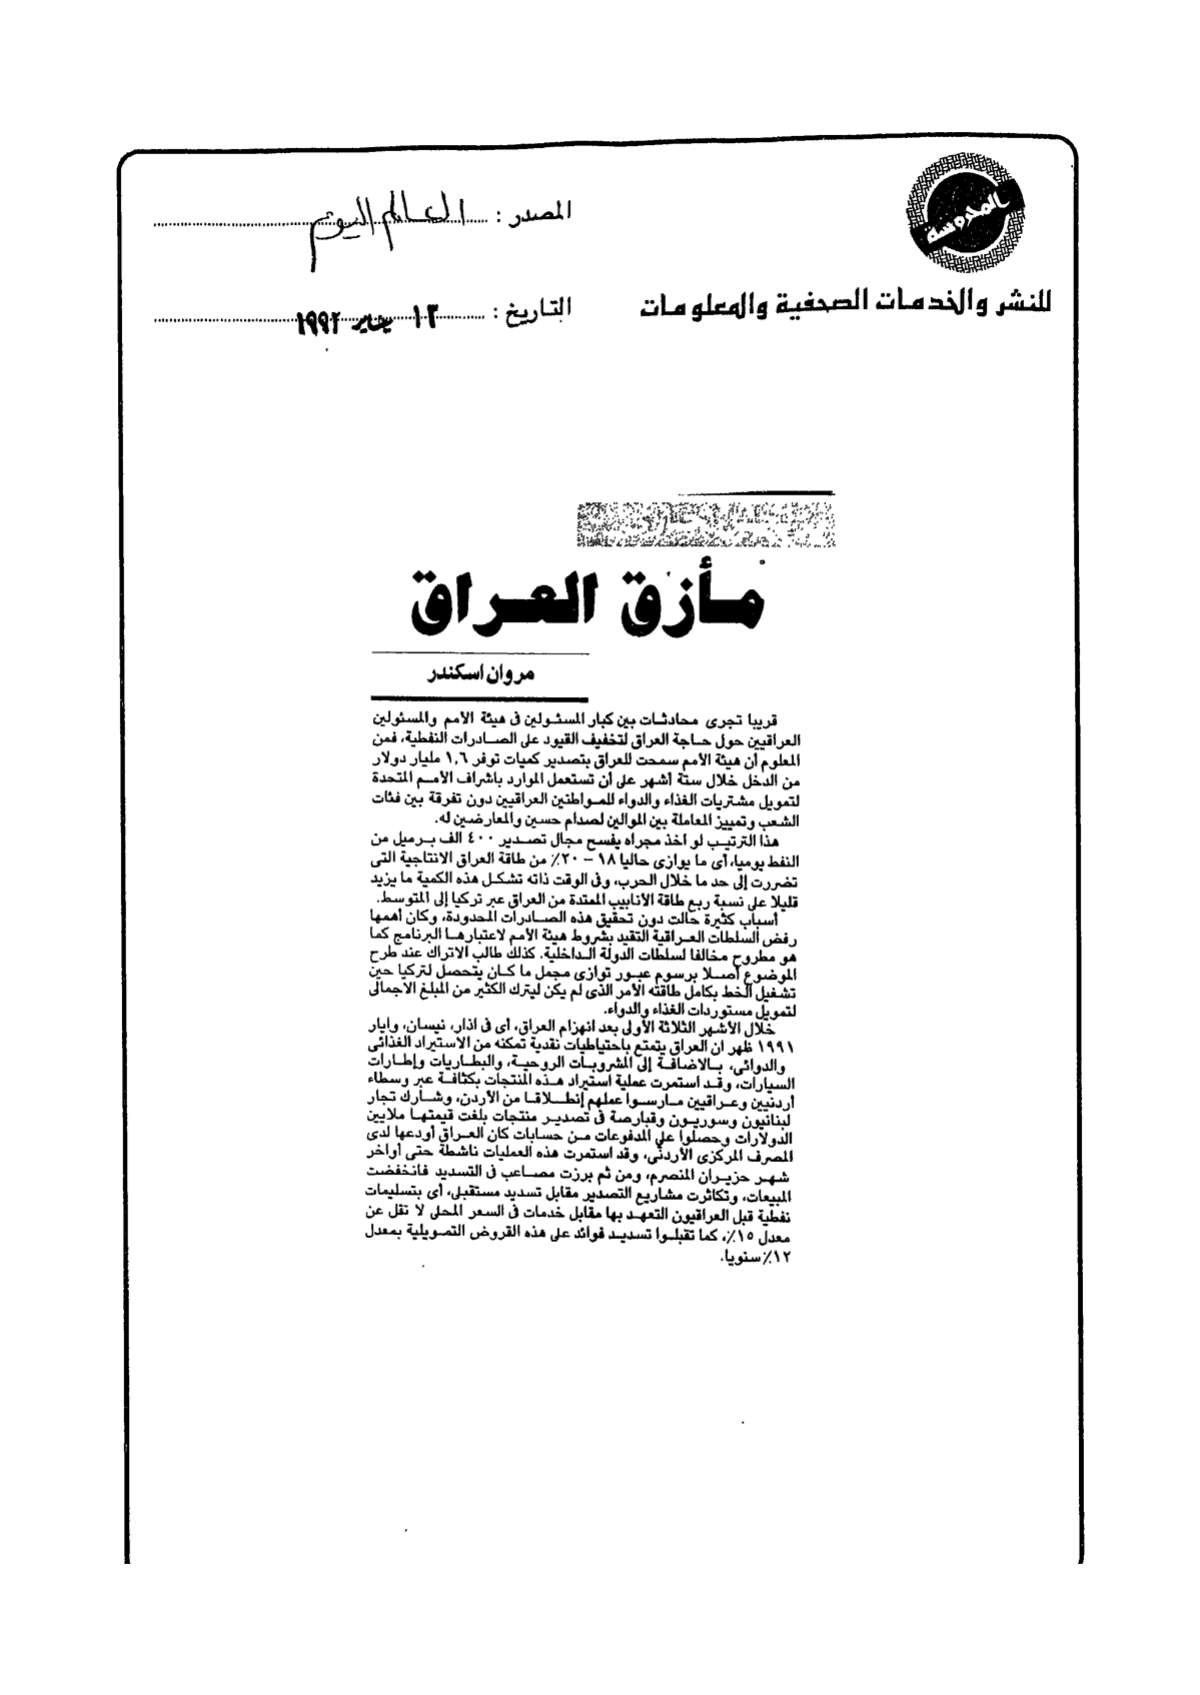 المحروسة
المصدر : العالم اليوم
للنشر والخدمات الصحفية والمعلومات
التاريخ : ١٢ يناير ١٩٩٢
مأزق العراق
مروان اسكندر
قريبا تجرى محادثات بين كبار المسئولين فى هيئة الأمم والمسئولين
العراقيين حول حاجة العراق لتخفيف القيود على الصادرات النفطية، فمن
المعلوم أن هيئة الأمم سمحت للعراق بتصدير كميات توفر ١,٦ مليار دولار
من الدخل خلال ستة أشهر على أن تستعمل الموارد باشراف الأمم المتحدة
لتمويل مشتريات الغذاء والدواء للمواطنين العراقيين دون تفرقة بين فئات
الشعب وتمييز المعاملة بين الموالين لصدام حسين والمعارضين له.
هذا الترتيب لو أخذ مجراه يفسح مجال تصدير ٤٠٠ الف برميل من
النفط يوميا، أى ما يوازى حاليا ١٨ – ٢٠٪ من طاقة العراق الانتاجية التى
تضررت إلى حد ما خلال الحرب، وفى الوقت ذاته تشكل هذه الكمية ما يزيد
قليلا على نسبة ربع طاقة الأنابيب الممتدة من العراق عبر تركيا إلى المتوسط.
أسباب كثيرة حالت دون تحقيق هذه الصادرات المحدودة، وكان أهمها
رفض السلطات العراقية التقيد بشروط هيئة الأمم لاعتبارها البرنامج كما
هو مطروح مخالفا لسلطات الدولة الداخلية. كذلك طالب الاتراك عند طرح
الموضوع أصلا برسوم عبور توازى مجمل ما كان يتحصل لتركيا حين
تشغيل الخط بكامل طاقته الأمر الذى لم يكن ليترك الكثير من المبلغ الاجمالى
لتمويل مستوردات الغذاء والدواء.
خلال الأشهر الثلاثة الأولى بعد انهزام العراق، أى فى اذار، نيسان، وايار
١٩٩١ ظهر ان العراق يتمتع باحتياطيات نقدية تمكنه من الاستيراد الغذائى
والدوائى، بالاضافة إلى المشروبات الروحية، والبطاريات وإطارات
السيارات، وقد استمرت عملية استيراد هذه المنتجات بكثافة عبر وسطاء
أردنيين وعراقيين مارسوا عملهم إنطلاقا من الأردن، وشارك تجار
لبنانيون وسوريون وقبارصة فى تصدير منتجات بلغت قيمتها ملايين
الدولارات وحصلوا على المدفوعات من حسابات كان العراق أودعها لدى
المصرف المركزى الأردنى، وقد استمرت هذه العمليات ناشطة حتى أواخر
شهر حزيران المنصرم، ومن ثم برزت مصاعب فى التسديد فانخفضت
المبيعات، وتكاثرت مشاريع التصدير مقابل تسديد مستقبلى، أى بتسليمات
نفطية قبل العراقيون التعهد بها مقابل خدمات فى السعر المحلى لا تقل عن
معدل ١٥٪، كما تقبلوا تسديد فوائد على هذه القروض التمويلية بمعدل
١٢٪ سنويا.